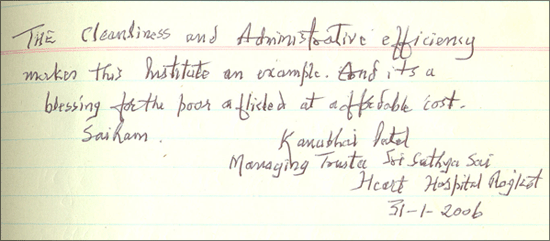 THE Cleanliness and Administrative efficiency
makes this Institute an example. And its a
blessing for the poor aflicted at affordable cost.
Sairam.
Kanubhai Patel
Managing Trustee Sri Sathya Sai
Heart Hospital Rajkot
31-1-2006